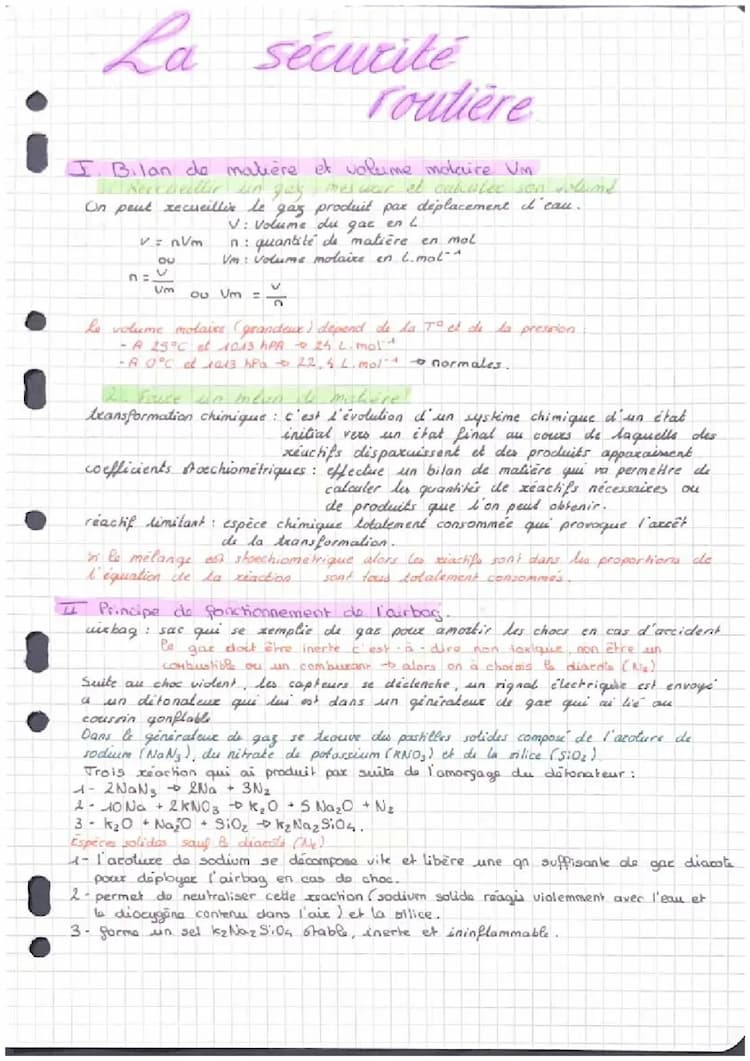 La sécurité
routière
I. Bilan de matière et volume molaire Vm
1. Recueillir un gaz, mesurer et calculer son volume
On peut recueillir le gaz produit par déplacement d'eau.
V : Volume du gaz en L
V = nVm n : quantité de matière en mol
ou Vm : Volume molaire en L.mol⁻¹
n = V/Vm ou Vm = V/n
Le volume molaire (grandeur) dépend de la T° et de la pression :
- A 25°C et 1013 hPA → 24 L.mol⁻¹
- A 0°C et 1013 hPa → 22,4 L.mol⁻¹ → normales.
2. Faire un bilan de matière
transformation chimique : c'est l'évolution d'un système chimique d'un état
initial vers un état final au cours de laquelle des
réactifs disparaissent et des produits apparaissent
coefficients stoechiométriques : effectue un bilan de matière qui va permettre de
calculer les quantités de réactifs nécessaires ou
de produits que l'on peut obtenir.
réactif limitant : espèce chimique totalement consommée qui provoque l'arrêt
de la transformation.
si le mélange est stoechiométrique alors les réactifs sont dans les proportions de
l'équation de la réaction sont tous totalement consommés.
II Principe de fonctionnement de l'airbag.
airbag : sac qui se remplie de gaz pour amortir les chocs en cas d'accident
le gaz doit être inerte c'est-à-dire non toxique, non être un
combustible ou un comburant → alors on a choisis le diazote (N₂)
Suite au choc violent, les capteurs se déclenche, un signal électrique est envoyé
a un détonateur qui lui est dans un générateur de gaz qui ai lié au
coussin gonflable
Dans le générateur de gaz se trouve des pastilles solides composé de l'azoture de
sodium (NaN₃), du nitrate de potassium (KNO₃) et de la silice (SiO₂)
Trois réaction qui ai produit par suite de l'amorçage du détonateur :
1- 2NaN₃ → 2Na + 3N₂
2- 10Na + 2KNO₃ → K₂O + 5Na₂O + N₂
3- K₂O + Na₂O + SiO₂ → K₂Na₂SiO₄.
Espèces solides sauf le diazote (N₂)
1- l'azoture de sodium se décompose vite et libère une qn suffisante de gaz diazote
pour déployer l'airbag en cas de choc.
2- permet de neutraliser cette reaction (sodium solide réagis violemment avec l'eau et
le dioxygène contenu dans l'air) et la silice.
3- forme un sel K₂Na₂SiO₄ stable, inerte et ininflammable.